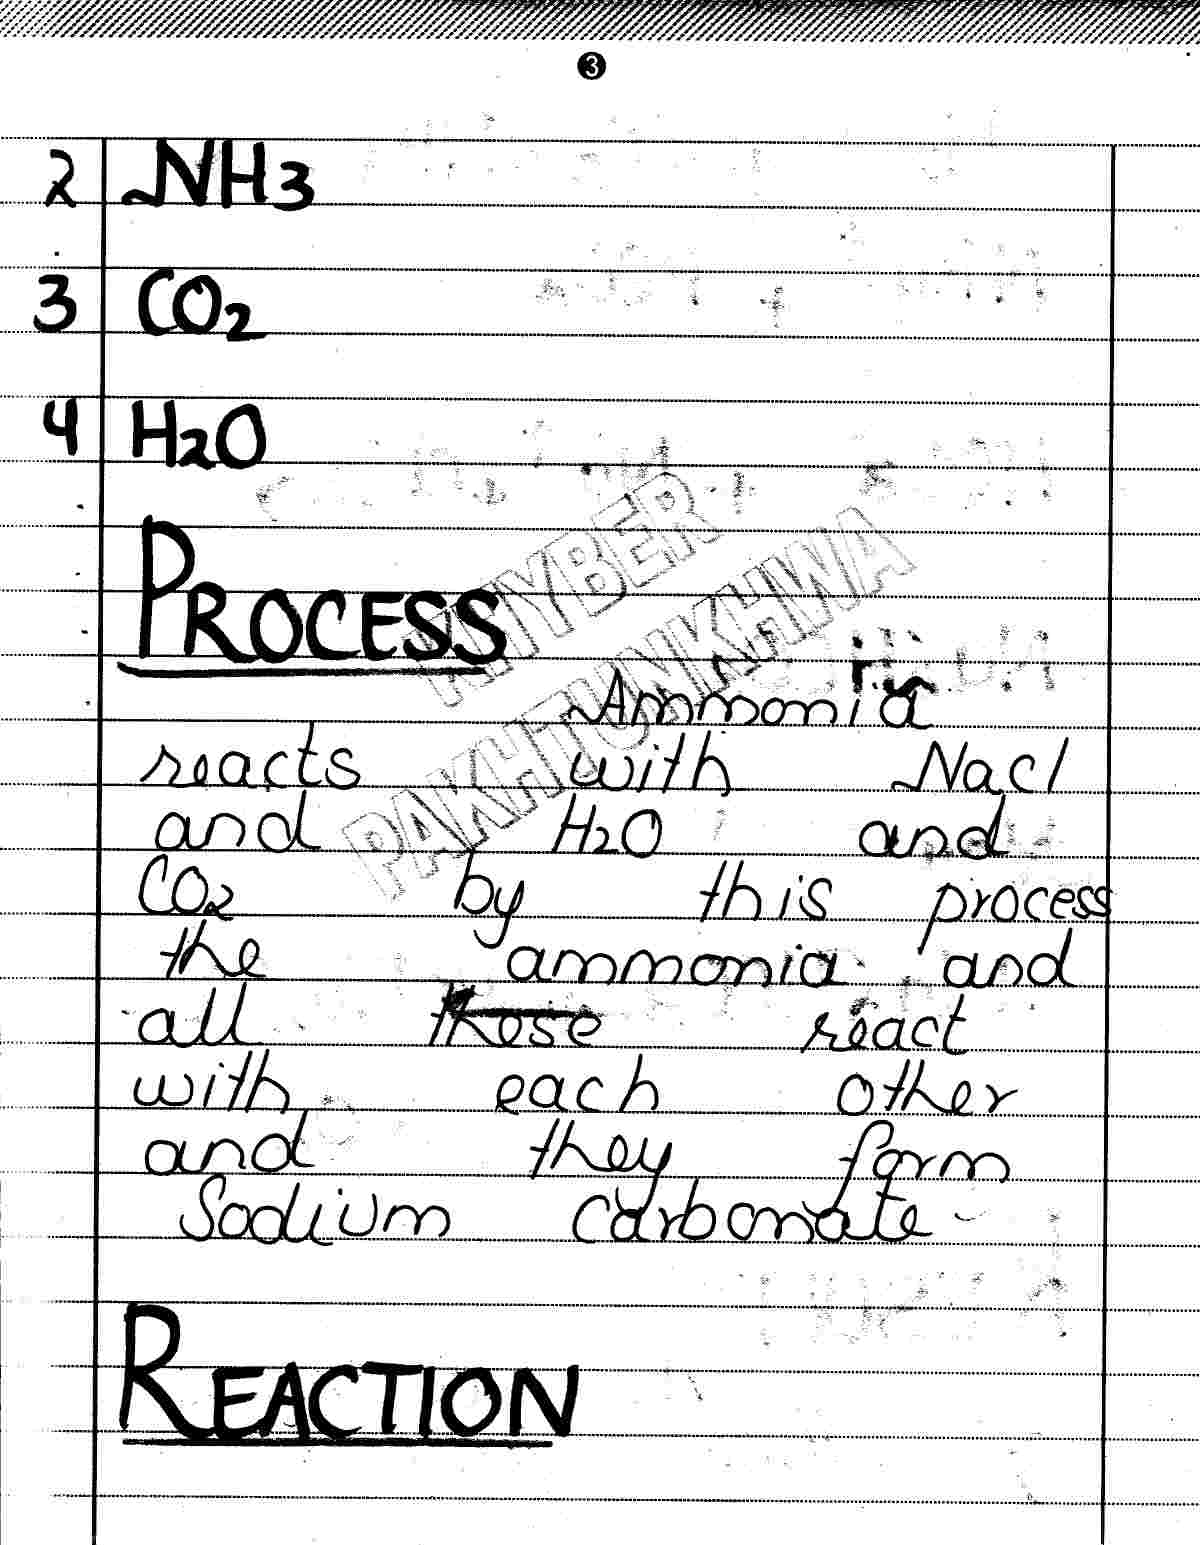 3
2 NH3
3 CO2
4 H2O
PROCESS
KHYBER
PAKHTUNKHWA
Ammonia
reacts with Nacl
and H2O and
CO2 by this process
the ammonia and
all these react
with each other
and they form
Sodium carbonate
REACTION